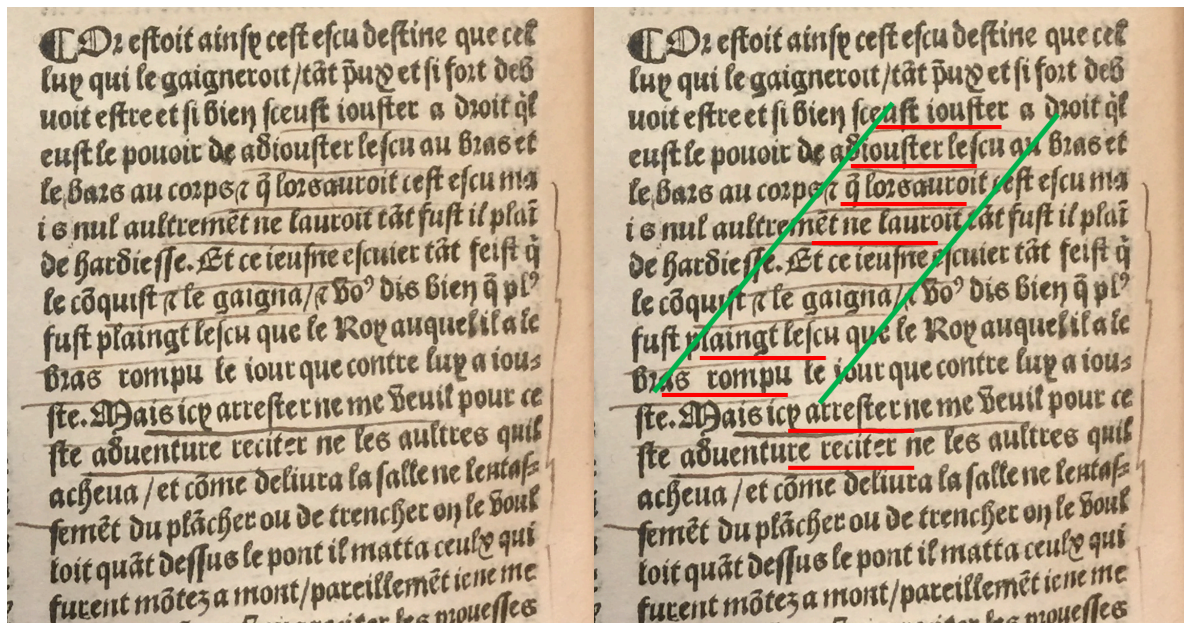 ¶Or estoit ainsy cest escu destine que cel
luy qui le gaigneroit/tāt p̄ux et si fort deb
uoit estre et si bien sceust iouster a droit q̄l
eust le pouoir de adiouster lescu au bras et
le bars au corps ⁊ q̄ lors auroit cest escu ma
is nul aultremēt ne lauroit tāt fust il plaī
de hardiesse. Et ce ieusne escuier tāt feist q̄
le cōquist ⁊ le gaigna/⁊ vo⁹ dis bien q̄ pl⁹
fust plaingt lescu que le Roy auquel il a le
bras rompu le iour que contre luy a iou⸗
ste. Mais icy arrester ne me veuil pour ce
ste aduenture reciter ne les aultres quil
acheua /et cōme deliura la salle ne lentas⸗
semēt du plācher ou de trencher on le voul
loit quāt dessus le pont il matta ceulx qui
furent mōtez a mont/pareillemēt ie ne me
reciter les prouesses
¶Or estoit ainsy cest escu destine que cel
luy qui le gaigneroit/tāt p̄ux et si fort deb
uoit estre et si bien sceust iouster a droit q̄l
eust le pouoir de adiouster lescu au bras et
le bars au corps ⁊ q̄ lors auroit cest escu ma
is nul aultremēt ne lauroit tāt fust il plaī
de hardiesse. Et ce ieusne escuier tāt feist q̄
le cōquist ⁊ le gaigna/⁊ vo⁹ dis bien q̄ pl⁹
fust plaingt lescu que le Roy auquel il a le
bras rompu le iour que contre luy a iou⸗
ste. Mais icy arrester ne me veuil pour ce
ste aduenture reciter ne les aultres quil
acheua /et cōme deliura la salle ne lentas⸗
semēt du plācher ou de trencher on le voul
loit quāt dessus le pont il matta ceulx qui
furent mōtez a mont/pareillemēt ie ne me
reciter les prouesses